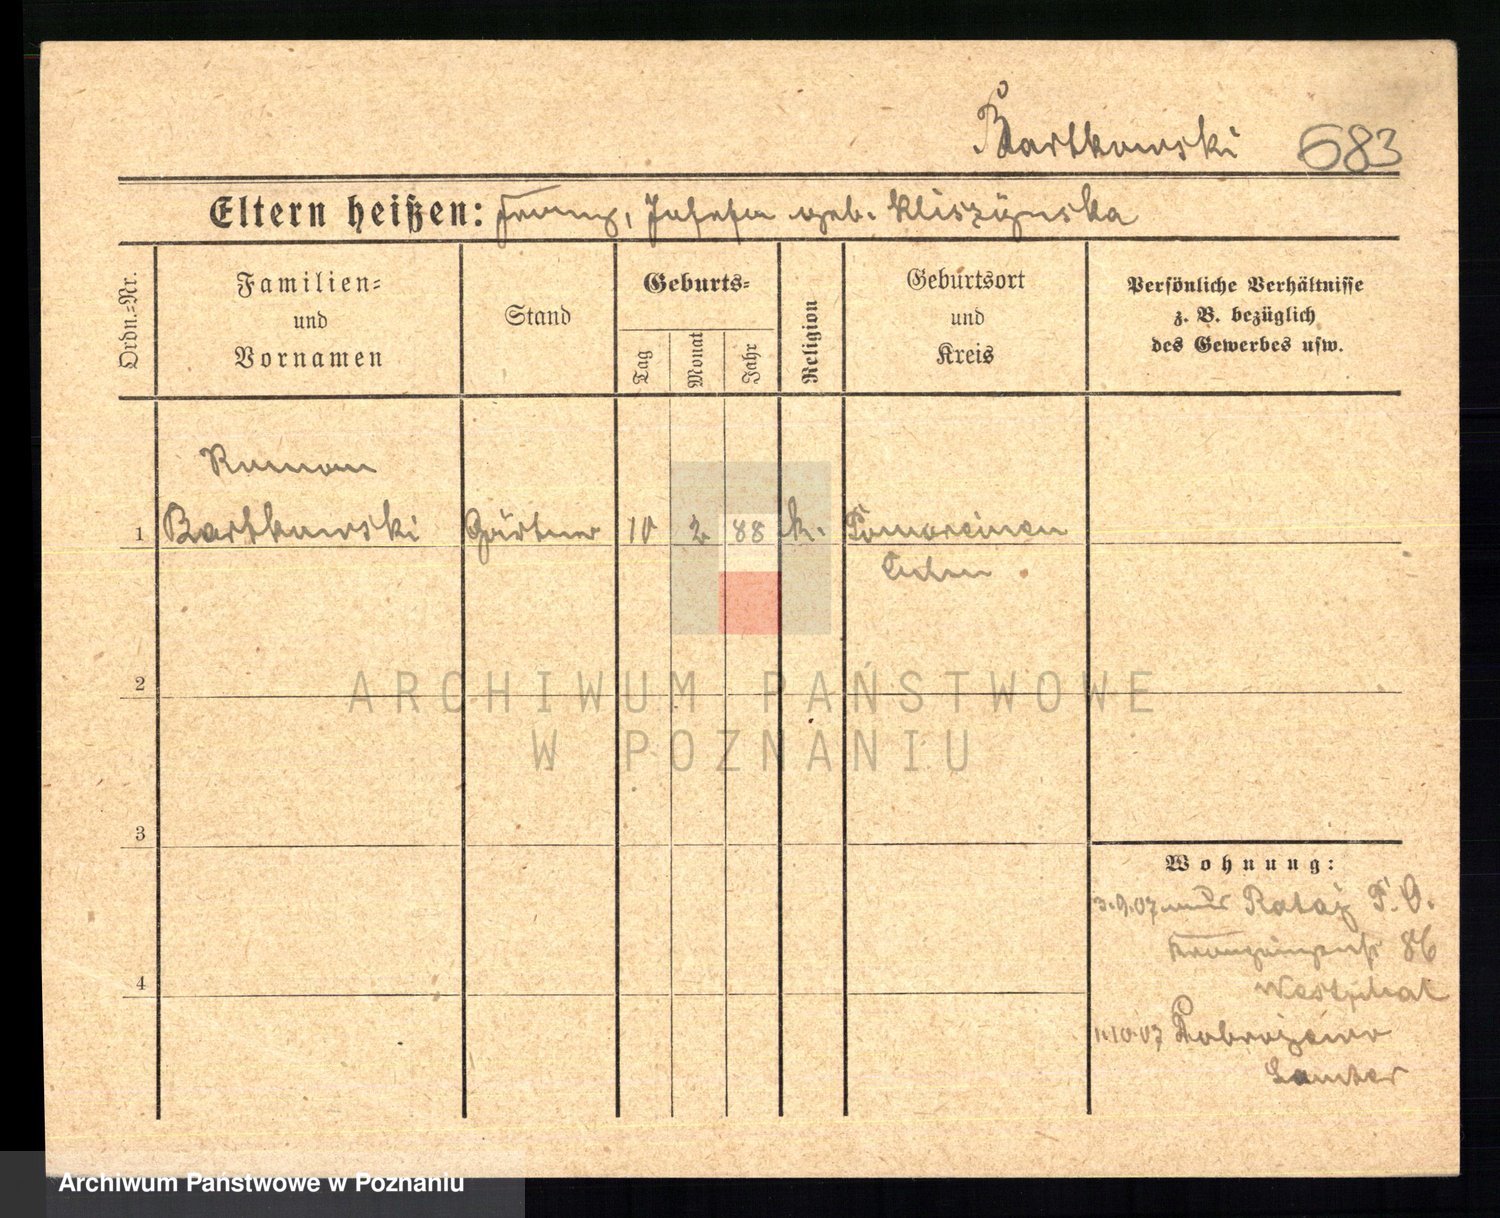 Bartkowski 683
Eltern heißen: Franz, Josefa geb. Kliszynska
Ordn.-Nr.
Familien-
und
Vornamen
Stand
Geburts-
Tag
Monat
Jahr
Religion
Geburtsort
und
Kreis
Persönliche Verhältnisse
z. B. bezüglich
des Gewerbes usw.
Roman
1 Bartkowski Gärtner 10 2 88 k.
2
3
4
Wohnung:
3.9.07 Rataj P. O.
86
1.10.07
Samter
ARCHIWUM PAŃSTWOWE
W POZNANIU
Archiwum Państwowe w Poznaniu